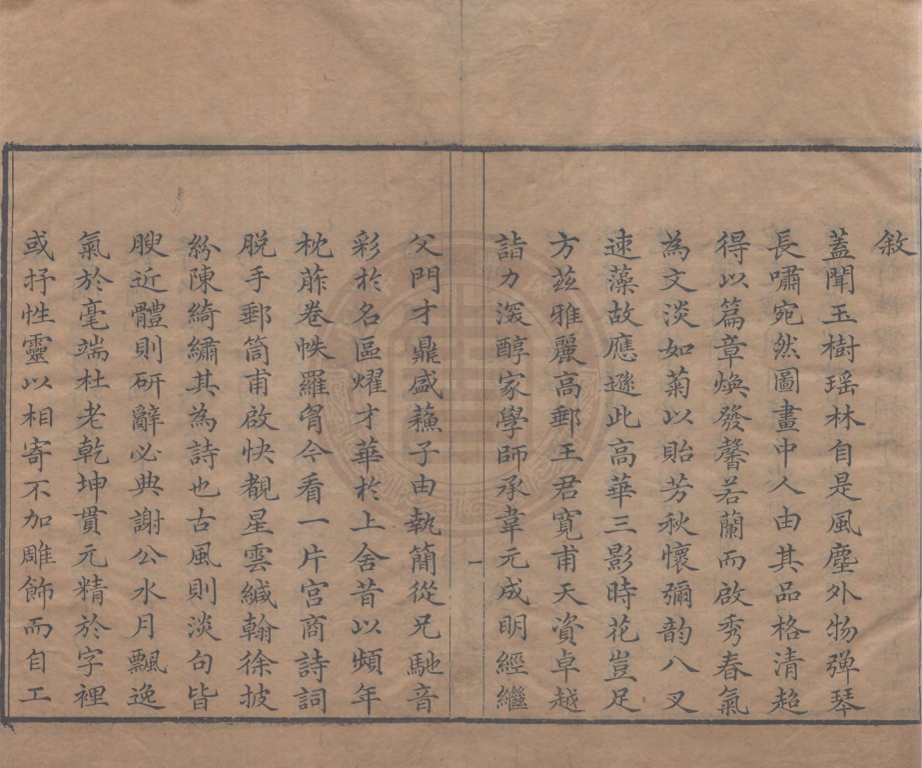 敘
蓋聞玉樹瑶林自是風塵外物弹琴
長嘯宛然圖畫中人由其品格清超
得以篇章煥發馨若蘭而啟秀春氣
為文淡如菊以貽芳秋懷彌韵八叉
速藻故應遜此高華三影時花豈足
方茲雅麗高郵王君寬甫天資卓越
詣力深醇家學師承韋元成明經繼
一
父門才鼎盛蘓子由執簡從兄馳音
彩於名區燿才華於上舍昔以頻年
枕葄卷帙羅胷今看一片宫商詩詞
脱手郵筒甫啟快覩星雲緘翰徐披
紛陳綺繡其為詩也古風則淡句皆
腴近體則研辭必典謝公水月飄逸
氣於毫端杜老乾坤貫元精於字裡
或抒性靈以相寄不加雕飾而自工